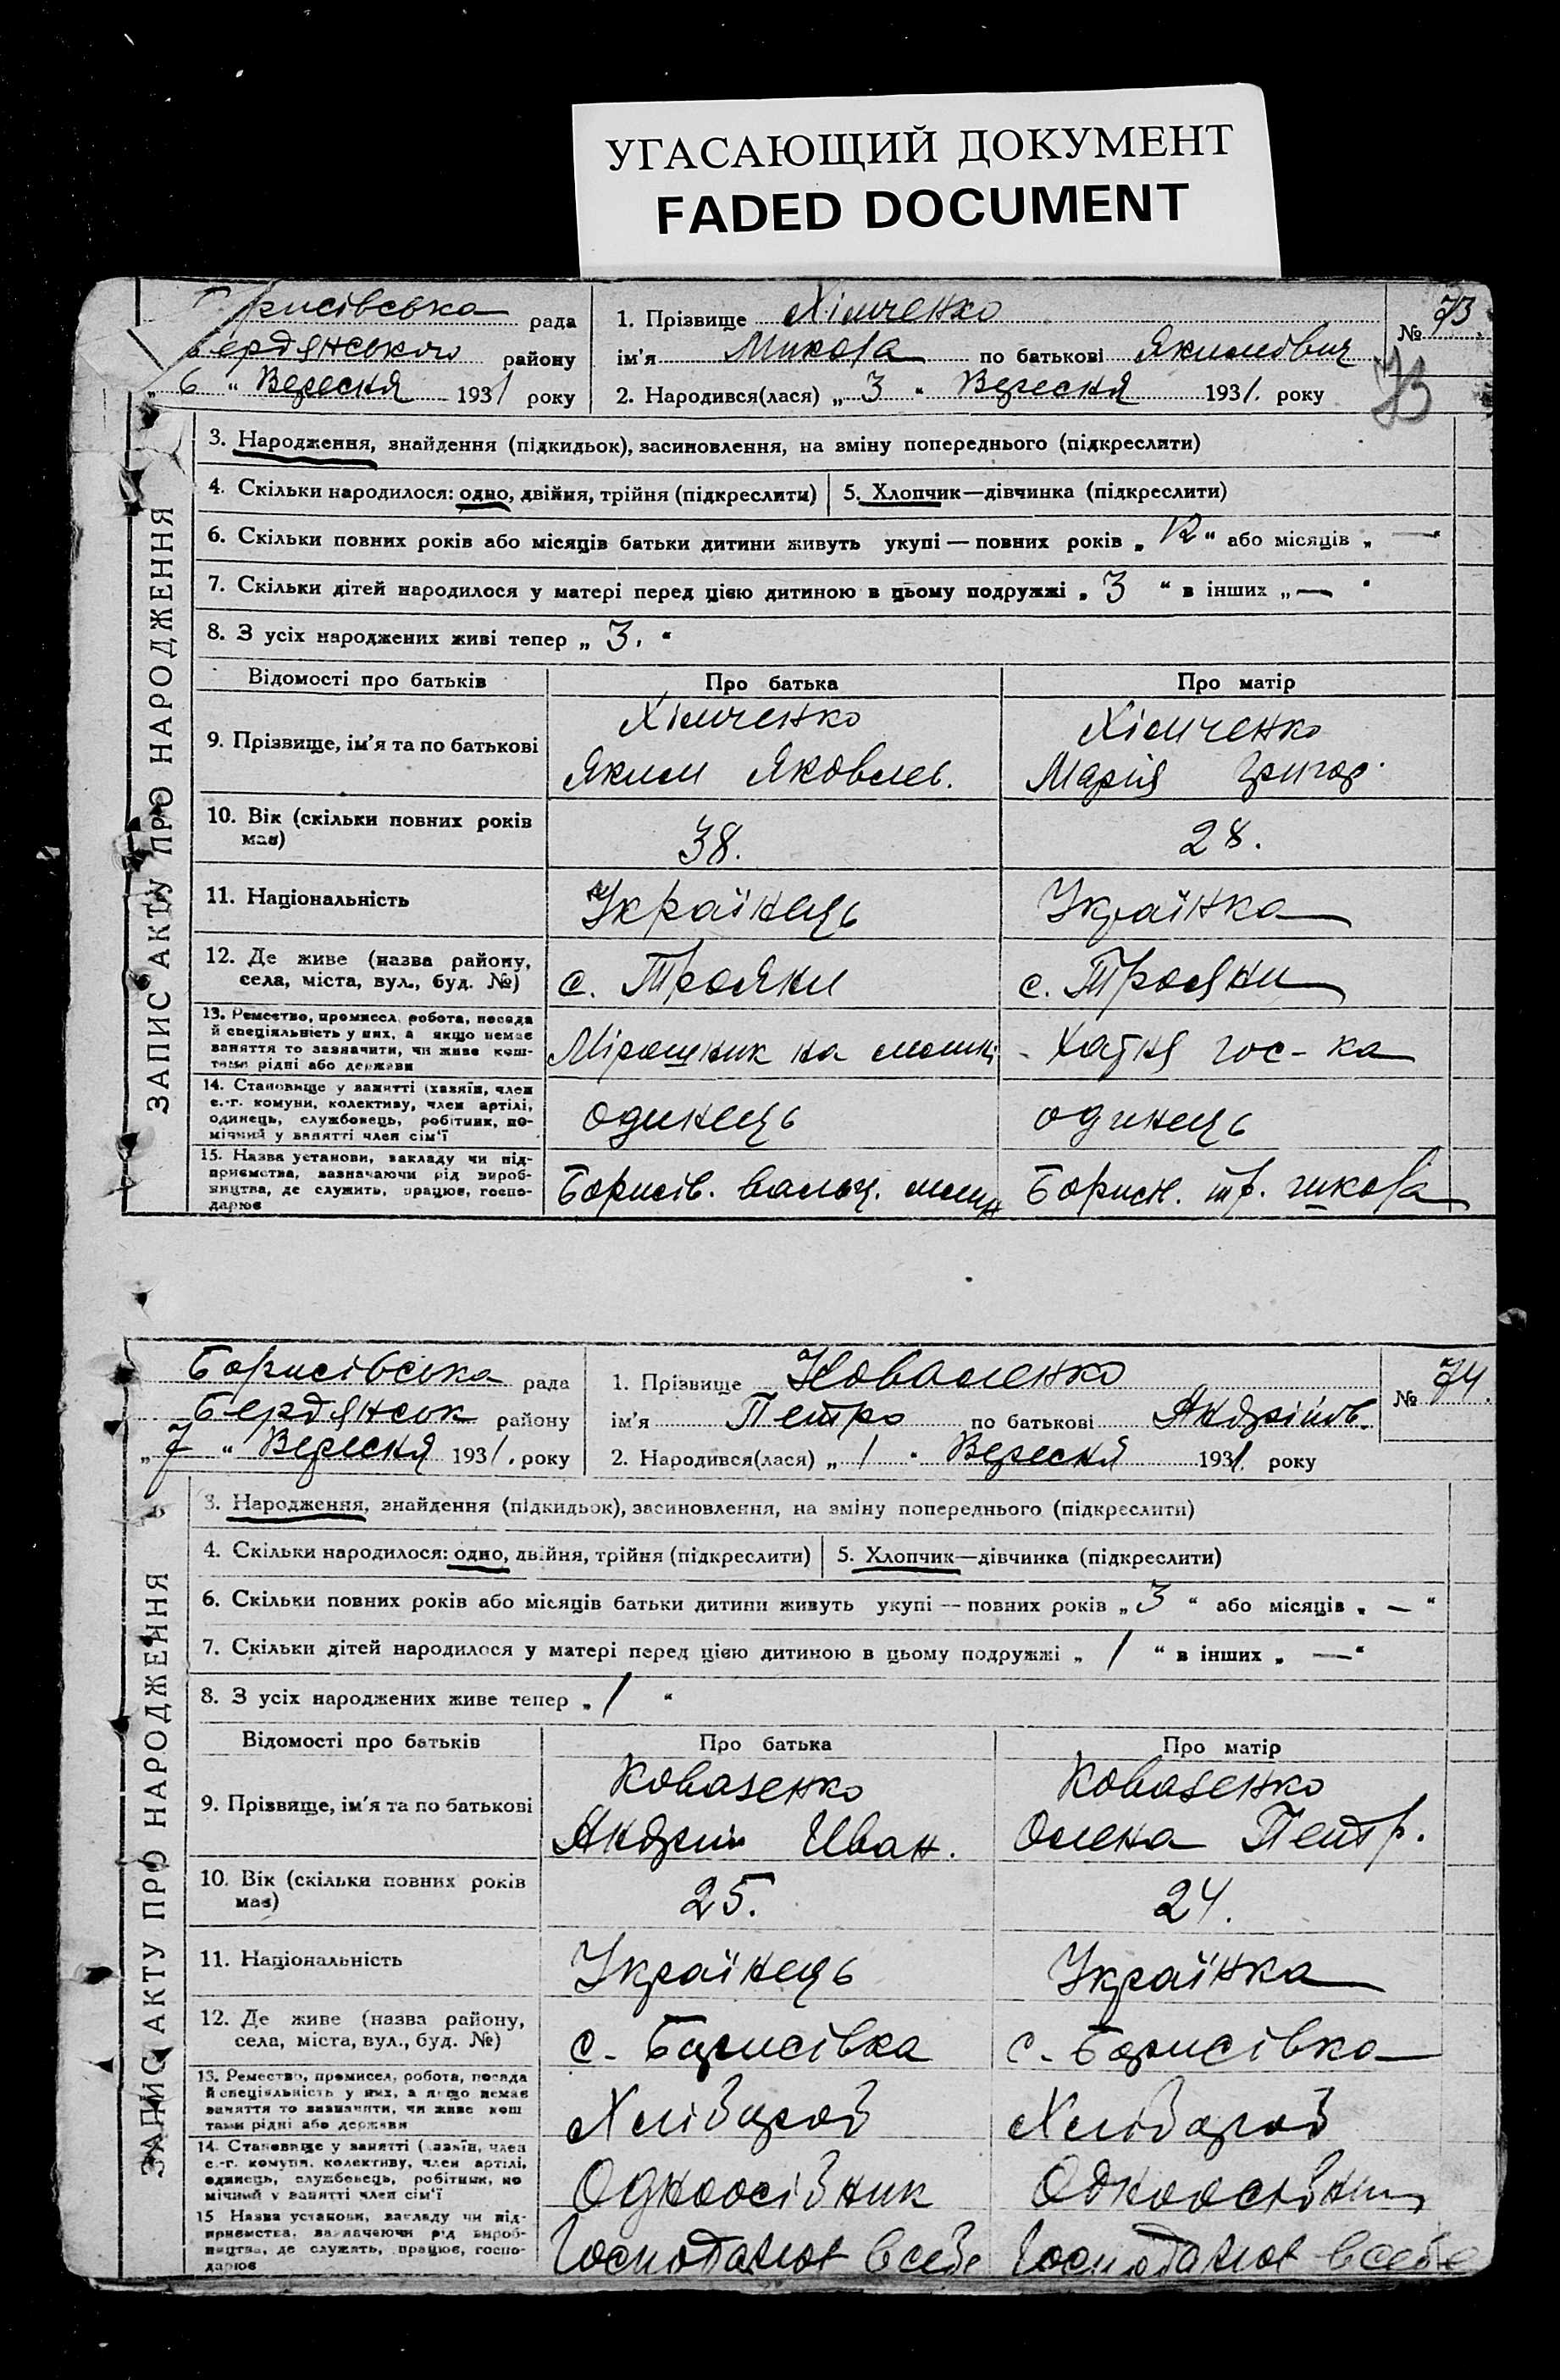 УГАСАЮЩИЙ ДОКУМЕНТ
FADED DOCUMENT
рисівська рада
Бердянського району
„ 6 “ Вересня 1931 року
1. Прізвище Хімченко
ім'я Микола по батькові Якимович
2. Народився(лася) „ 3 “ Вересня 1931. року
№ 73
73
ЗАПИС АКТУ ПРО НАРОДЖЕННЯ
3. Народження, знайдення (підкидьок), засиновлення, на зміну попереднього (підкреслити)
4. Скільки народилося: одно, двійня, трійня (підкреслити) 5. Хлопчик—дівчинка (підкреслити)
6. Скільки повних років або місяців батьки дитини живуть укупі — повних років „ 12 “ або місяців „ — “
7. Скільки дітей народилося у матері перед цією дитиною в цьому подружжі „ 3 “ в інших „ — “
8. З усіх народжених живі тепер „ 3. “
Відомості про батьків Про батька Про матір
9. Прізвище, ім'я та по батькові
Хімченко Хімченко
Яким Яковлев. Марія Григор.
10. Вік (скільки повних років має) 38. 28.
11. Національність Українець Українка
12. Де живе (назва району, села, міста, вул., буд. №) с. Трояни с. Трояни
13. Ремество, промисел, робота, посада й спеціяльність у них, а якщо немає заняття то зазначити, чи живе коштами рідні або держави
Мірошник на Хатня гос-ка
14. Становище у занятті (хазяїн, член с.-г. комуни, колективу, член артілі, одинець, службовець, робітник, помічний у занятті член сім'ї
одинець одинець
15. Назва установи, закладу чи підприємства, зазначаючи рід виробництва, де служить, працює, господарює
Борисів. вальц. Борисів.
Борисівська рада
Бердянськ району
„ 7 “ Вересня 1931. року
1. Прізвище Коваленко
ім'я Петро по батькові Андріїов.
2. Народився(лася) „ 1 “ Вересня 1931. року
№ 74.
ЗАПИС АКТУ ПРО НАРОДЖЕННЯ
3. Народження, знайдення (підкидьок), засиновлення, на зміну попереднього (підкреслити)
4. Скільки народилося: одно, двійня, трійня (підкреслити) 5. Хлопчик—дівчинка (підкреслити)
6. Скільки повних років або місяців батьки дитини живуть укупі — повних років „ 3 “ або місяців „ — “
7. Скільки дітей народилося у матері перед цією дитиною в цьому подружжі „ 1 “ в інших „ — “
8. З усіх народжених живе тепер „ 1 “
Відомості про батьків Про батька Про матір
9. Прізвище, ім'я та по батькові
Коваленко Коваленко
Андрій Иван. Олена Петр.
10. Вік (скільки повних років має) 25. 24.
11. Національність Українець Українка
12. Де живе (назва району, села, міста, вул., буд. №) с. Борисівка с. Борисівка
13. Ремество, промисел, робота, посада й спеціяльність у них, а якщо немає заняття то зазначити, чи живе коштами рідні або держави
Хлібороб Хлібороб
14. Становище у занятті (хазяїн, член с.-г. комуни, колективу, член артілі, одинець, службовець, робітник, помічний у занятті член сім'ї
Одноосібник
15 Назва установи, закладу чи підприємства, зазначаючи рід виробництва, де служить, працює, господарює
в себе в себе